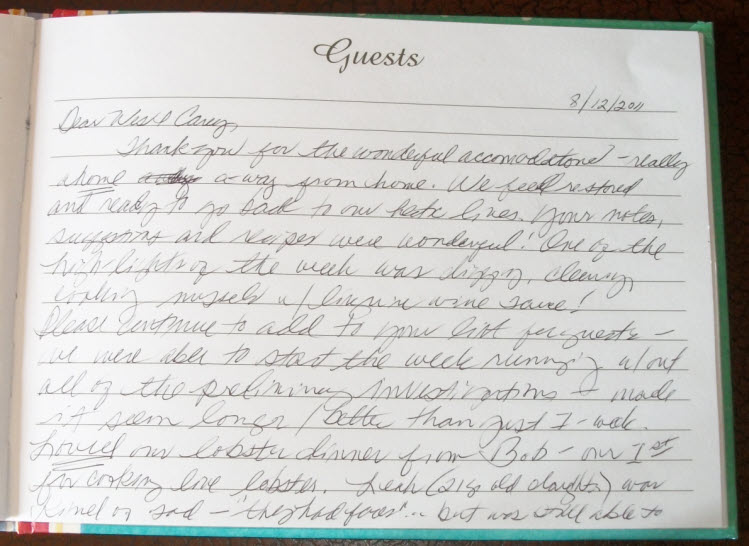 Guests
8/12/2011
Dear West Carey,
Thank you for the wonderful accomodations - really
a home a-way from home. We feel restored
and ready to go back to our hectic lives. Your notes,
suggestions and recipes were wonderful! One of the
highlights of the week was digging, cleaning,
cooking mussels w/ linguine wine sauce!
Please continue to add to your list for guests -
we were able to start the week running w/out
all of the preliminary investigations - made
it seem longer / better than just 1-week.
Loved our lobster dinner from Bob - our 1st
for cooking live lobster. Leah (21 old daughter) was
kind of sad - "they had faces"... but was still able to